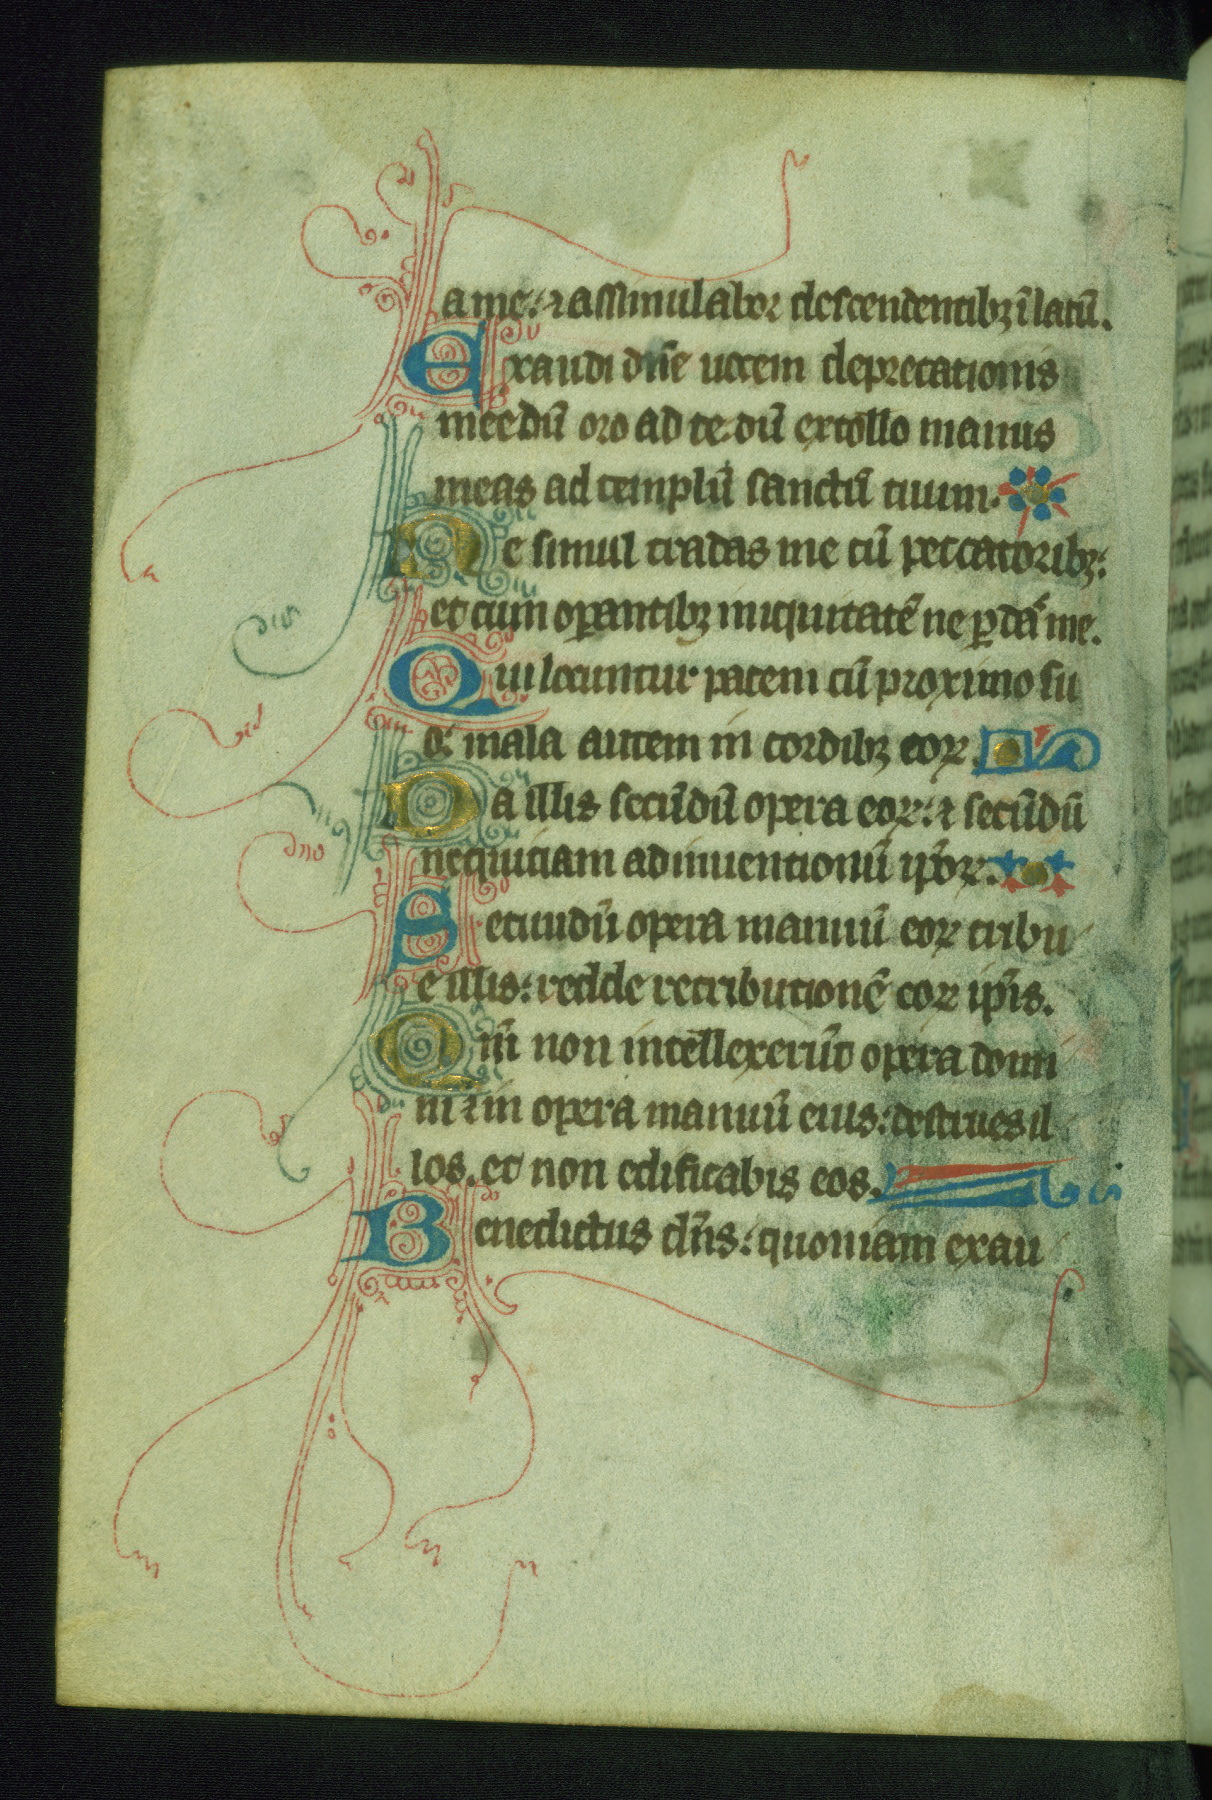 a me. ⁊ assimulabor descendentibꝫ ĩ lacũ.
Exaudi dñe uocem deprecationis
mee dũ oro ad te. dũ extollo manus
meas ad templũ sanctũ tuum.
Ne simul tradas me cũ peccatoribꝫ:
et cum oꝑantibꝫ iniquitatẽ ne ꝑdas me.
Qui locuntur pacem cũ proximo su
o: mala autem in cordibꝫ eoꝝ.
Da illis secũdũ opera eoꝝ: ⁊ secũdũ
nequitiam adinuentionũ ip̃oꝝ.
Secundũ opera manuũ eoꝝ tribu
e illis: redde retributionẽ eoꝝ ip̃is.
Qm̃ non intellexerũt opera domi
ni ⁊ in opera manuũ eius: destrues il
los. et non edificabis eos.
Benedictus dñs: quoniam exau